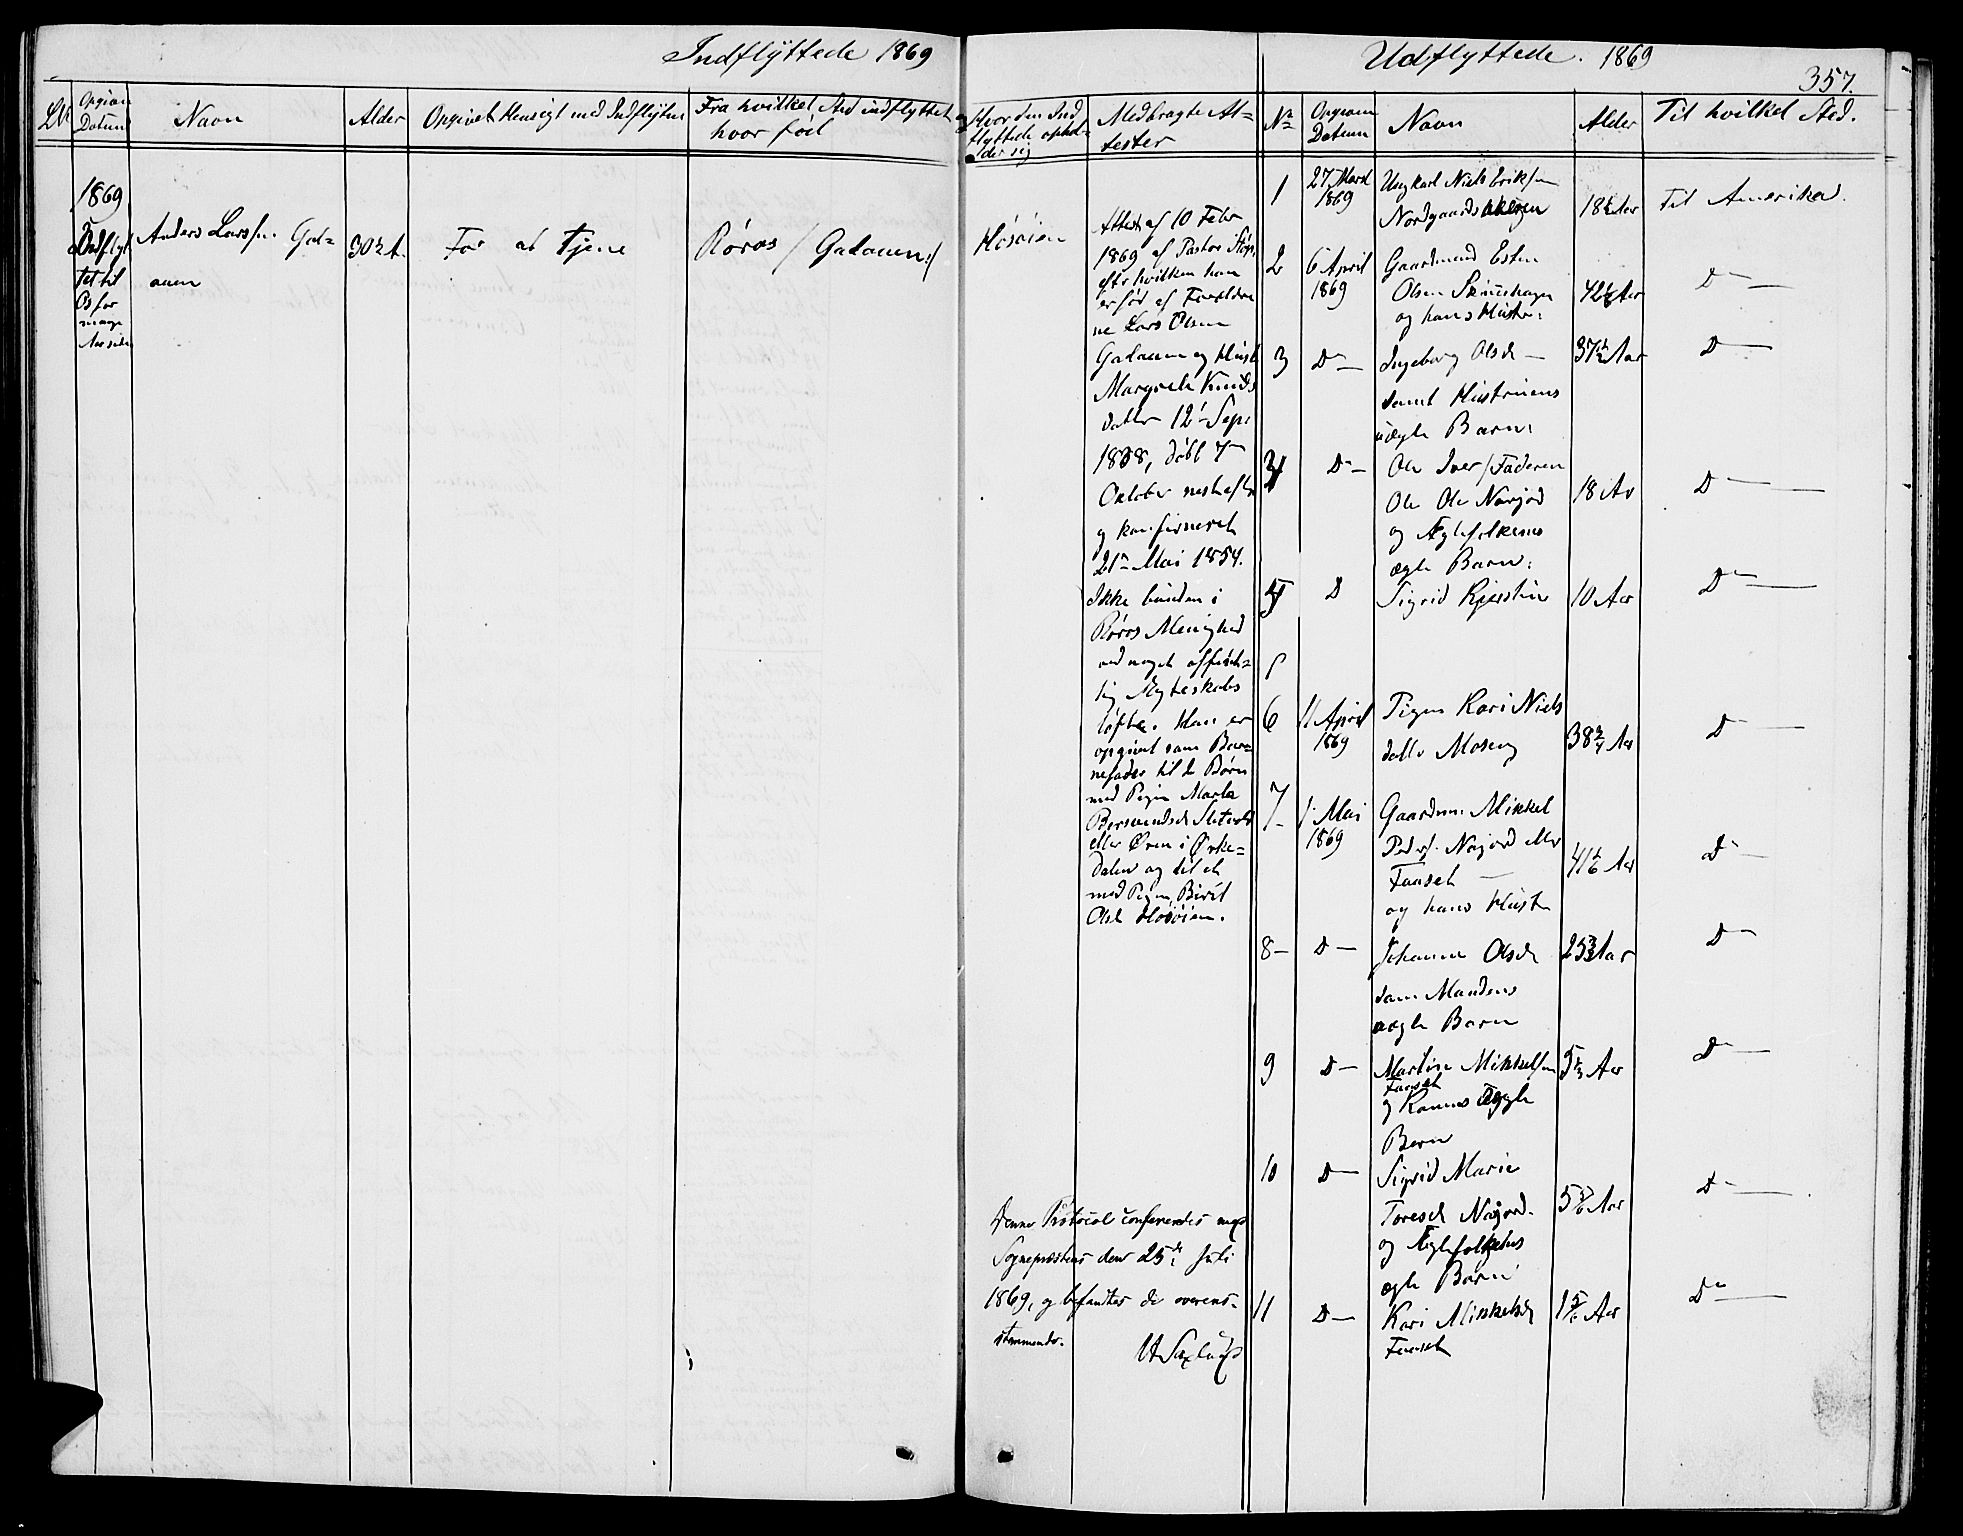 Indflyttede 1869
LN
Opgiven
Datum
Navn
Alder
Opgivet Hensigt med Indflytn
Fra hvilket Sted indflyttet og
hvor föd
Hvor den Ind
flyttede ophol-
der sig
Medbragte At-
tester
1869
Indflyt
tet til
Os for
mange
Aar siden
Anders Larss. Gal-
aaen
30 A.
For at tjene
Röros / Galaaen /
Hosöien
Attest af 10 Febr
1869 af Pastor
efter hvilken han
er föd af Foreldre
ne Lars Olsen
Galaaen og Hust
Margrete Knuds
datter 12 Sept
1838, döbt 7
October nestefter
og konfirmeret
21 Mai 1854.
Ikke bunden i
Röros Menighed
ved noget offent-
lig Ægteskabs
löfte. Han er
opgivet som Bar-
nefader til 2 Börn
med Pigen Marte
Bersvendsd
eller Øren i Orke-
dalen og til et
med Pigen Berit
Olsd Hosöien.
Denne Protocol confereredes med
Sognepræstens den 25de Juli
1869, og befandtes de overens-
stemmende.
Udflyttede. 1869
357.
No
Opgiven
Datum
Navn
Alder
Til hvilket Sted.
1
27 Marts
1869
Ungkarl Niels Eriksen
Nordgaards
18 Aar
Til Amerika.
2
6 April
1869
Gaardmand Esten
Olsen
og hans Hustru:
42 Aar
D —
3
D —
Ingeborg Olsd —
samt Hustruens
uægte Barn:
37 Aar
D —
4
D —
Ole Iver / Faderen
Ole Ols Narjord
og Ægtefolkenes
ægte Barn:
18 Ar
D —
5
D
Sigrid Kjerstine
10 Aar
D —
6
11 April
1869
Pigen Kari Niels
datter Moseng
38 3/4 Ar
D —
7
1 Mai
1869
Gaardm. Mikkel
Peders. Narjord eller
Faaset —
og hans Hustru
41 1/6 Ar
D —
8 —
D —
Johanne Olsd
sam Mandens
uægte Barn
25 Aar
D —
9
D —
Martin Mikkelsen
Faaset
og Konens uægte
Barn
5 Aar
D —
10
D —
Sigrid Marie
Toresd Narjord.
og Ægtefolkenes
ægte Barn
5 5/6 Aar
D —
11
D —
Kari Mikkelsd
Faaset
1 5/6 Aar
D —